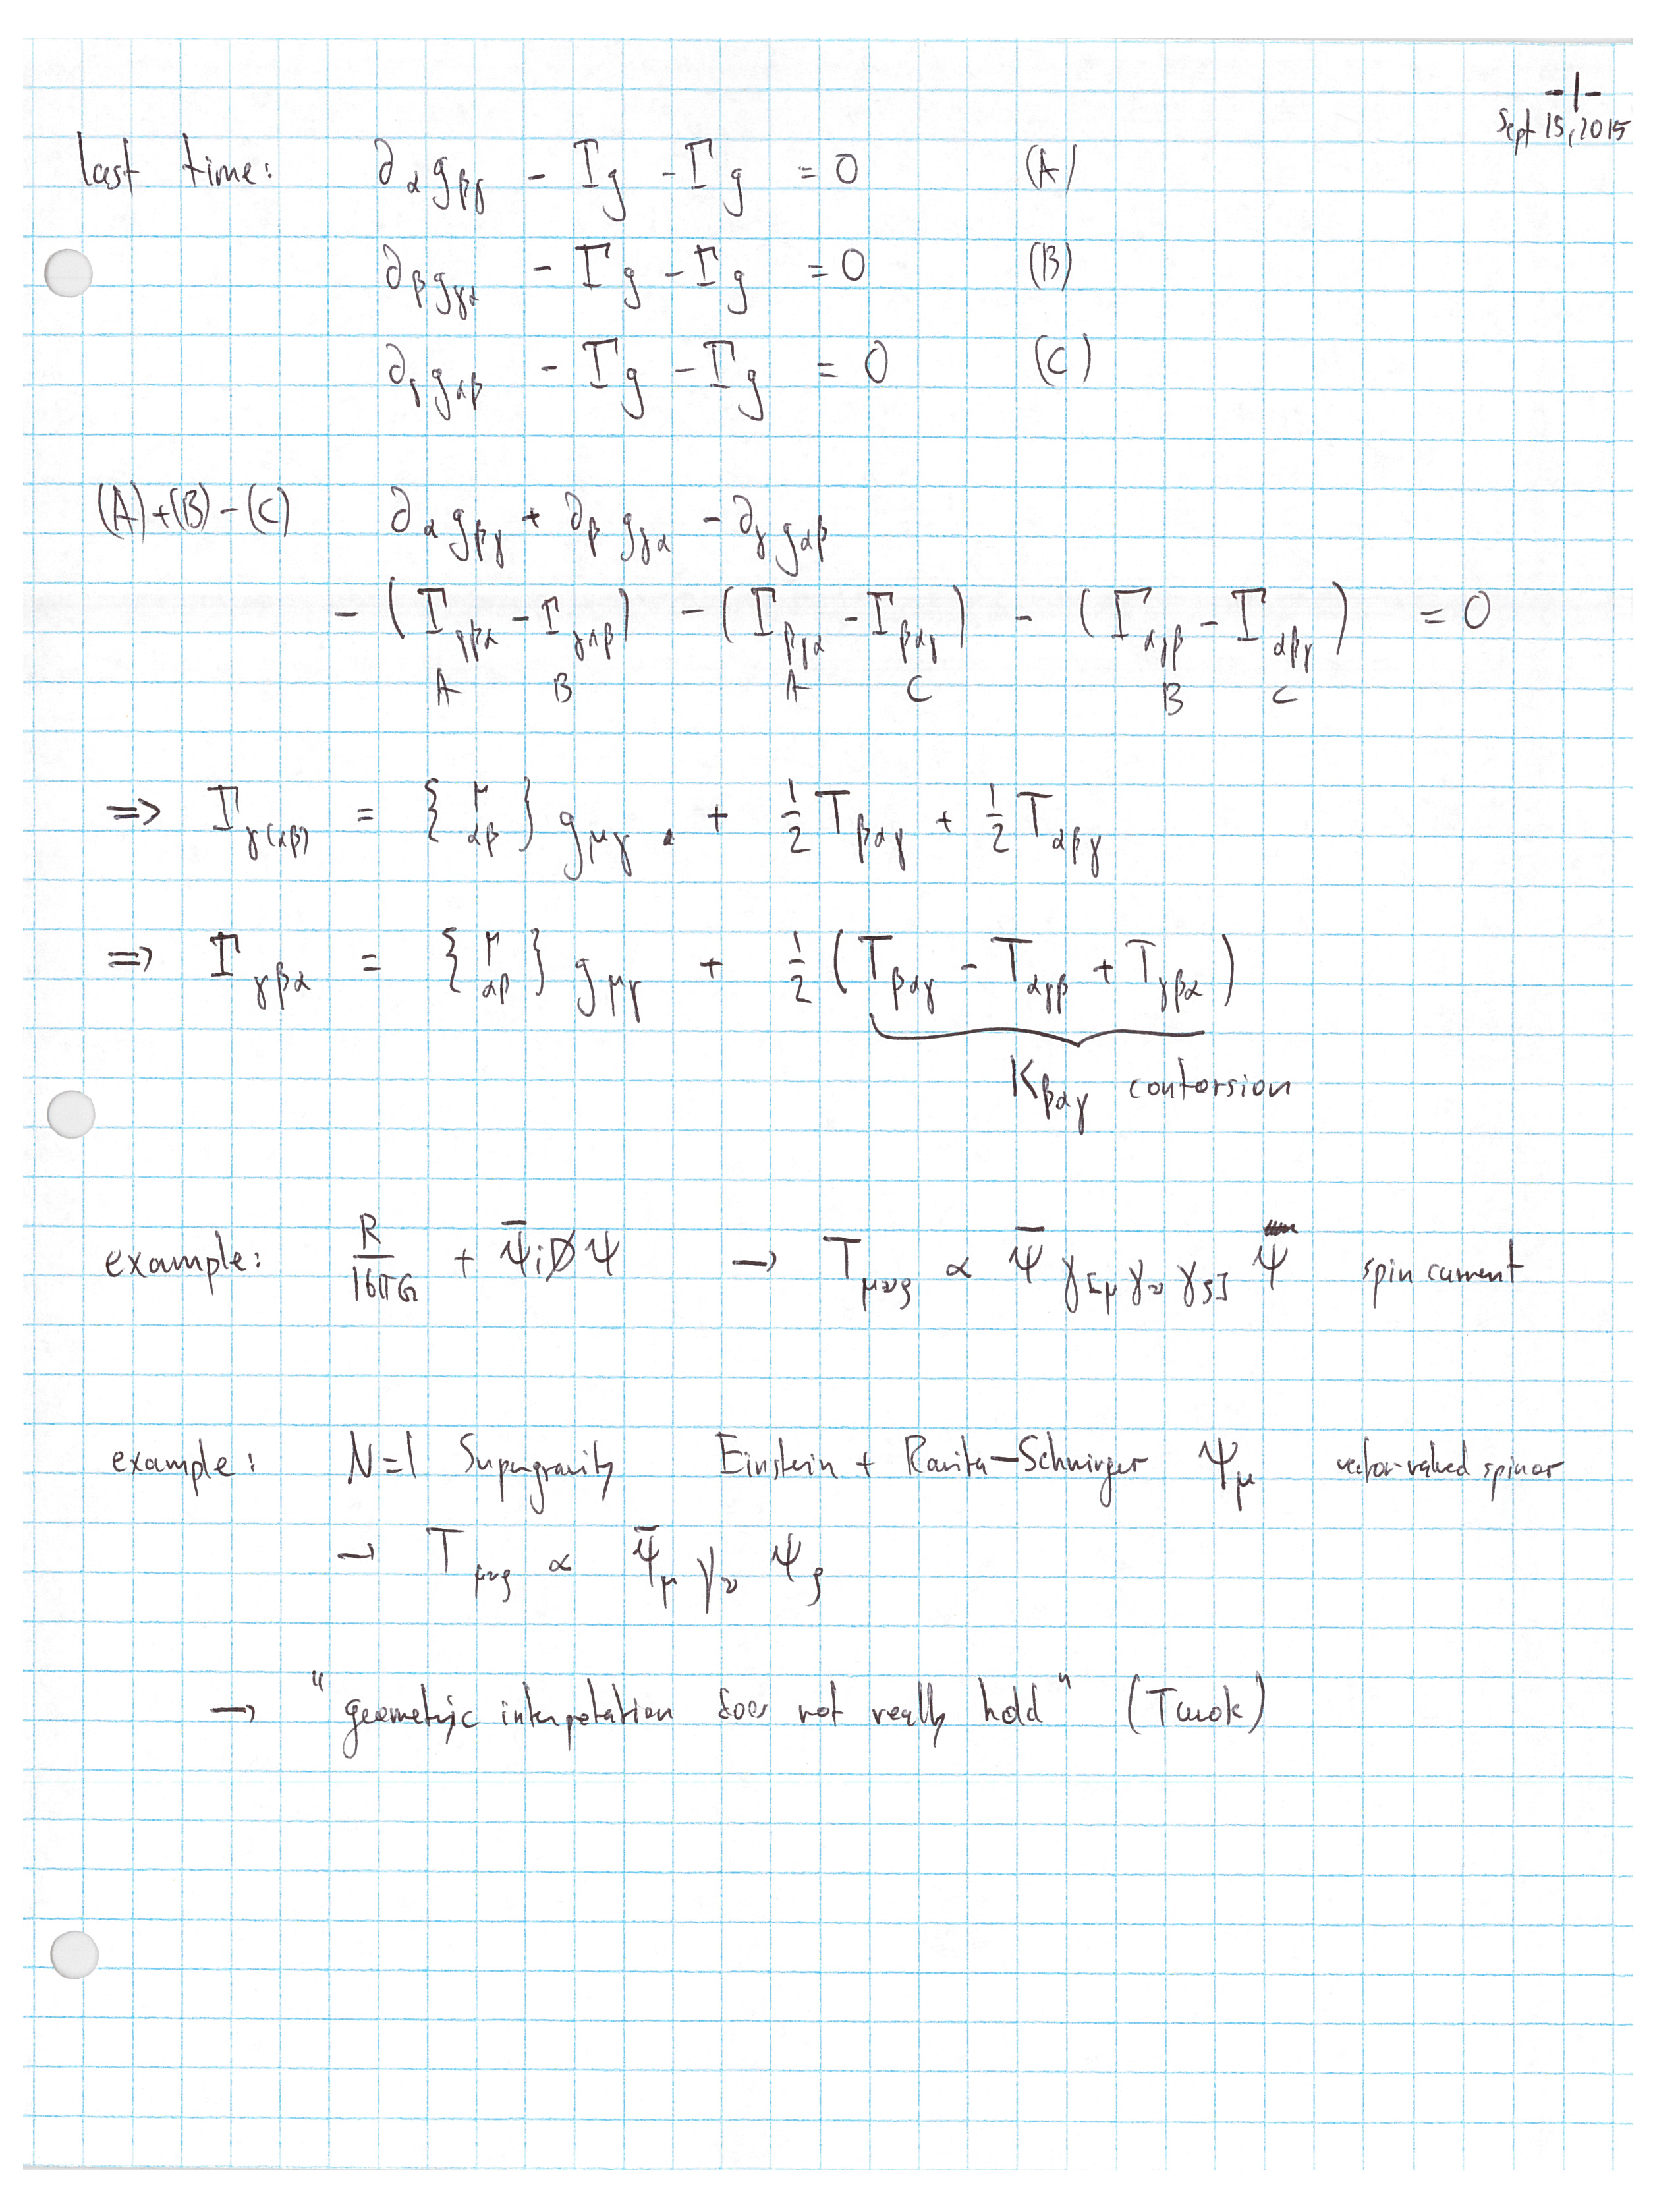 -1-
Sept 15, 2015
last time: ∂_α g_βγ - Γg - Γg = 0 (A)
∂_β g_γα - Γg - Γg = 0 (B)
∂_γ g_αβ - Γg - Γg = 0 (C)
(A)+(B)-(C) ∂_α g_βγ + ∂_β g_γα - ∂_γ g_αβ
- (Γ_γβα - Γ_γαβ) - (Γ_βγα - Γ_βαγ) - (Γ_αγβ - Γ_αβγ) = 0
A B A C B C
=> Γ_γ(αβ) = {^μ_αβ} g_μγ + 1/2 T_βαγ + 1/2 T_αβγ
=> Γ_γβα = {^μ_αβ} g_μγ + 1/2 (T_βαγ - T_αγβ + T_γβα)
K_βαγ contorsion
example: R/16πG + Ψ̄iD̸Ψ → T_μνρ ∝ Ψ̄ γ_[μ γ_ν γ_ρ] Ψ spin current
example: N=1 Supergravity Einstein + Rarita-Schwinger Ψ_μ vector-valued spinor
→ T_μνρ ∝ Ψ̄_μ γ_ν Ψ_ρ
→ "geometric interpretation does not really hold" (Turok)